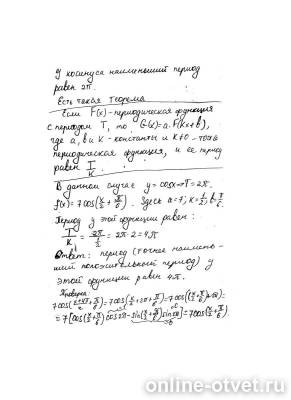 У косинуса наименьший период
равен 2π.
Есть такая Теорема
Если F(x) - периодическая функция
с периодом T, то G(x)=a·F(kx+b),
где a, b и k - константы и k≠0 - тоже
периодическая функция, и ее период
равен T/k.
В данном случае y = cosx => T = 2π.
f(x) = 7cos(x/2 + π/6). Здесь a = 7, k = 1/2, b = π/6
Период у этой функции равен:
T/k = 2π/(1/2) = 2π·2 = 4π
Ответ: период (точнее наимень-
ший положительный период) у
этой функции равен 4π.
Проверка:
7cos((x+4π)/2+π/6) = 7cos(x/2+2π+π/6) = 7cos((x/2+π/6)+2π) =
= 7[cos(x/2+π/6)cos2π - sin(x/2+π/6)sin2π] = 7cos(x/2+π/6).
online-otvet.ru